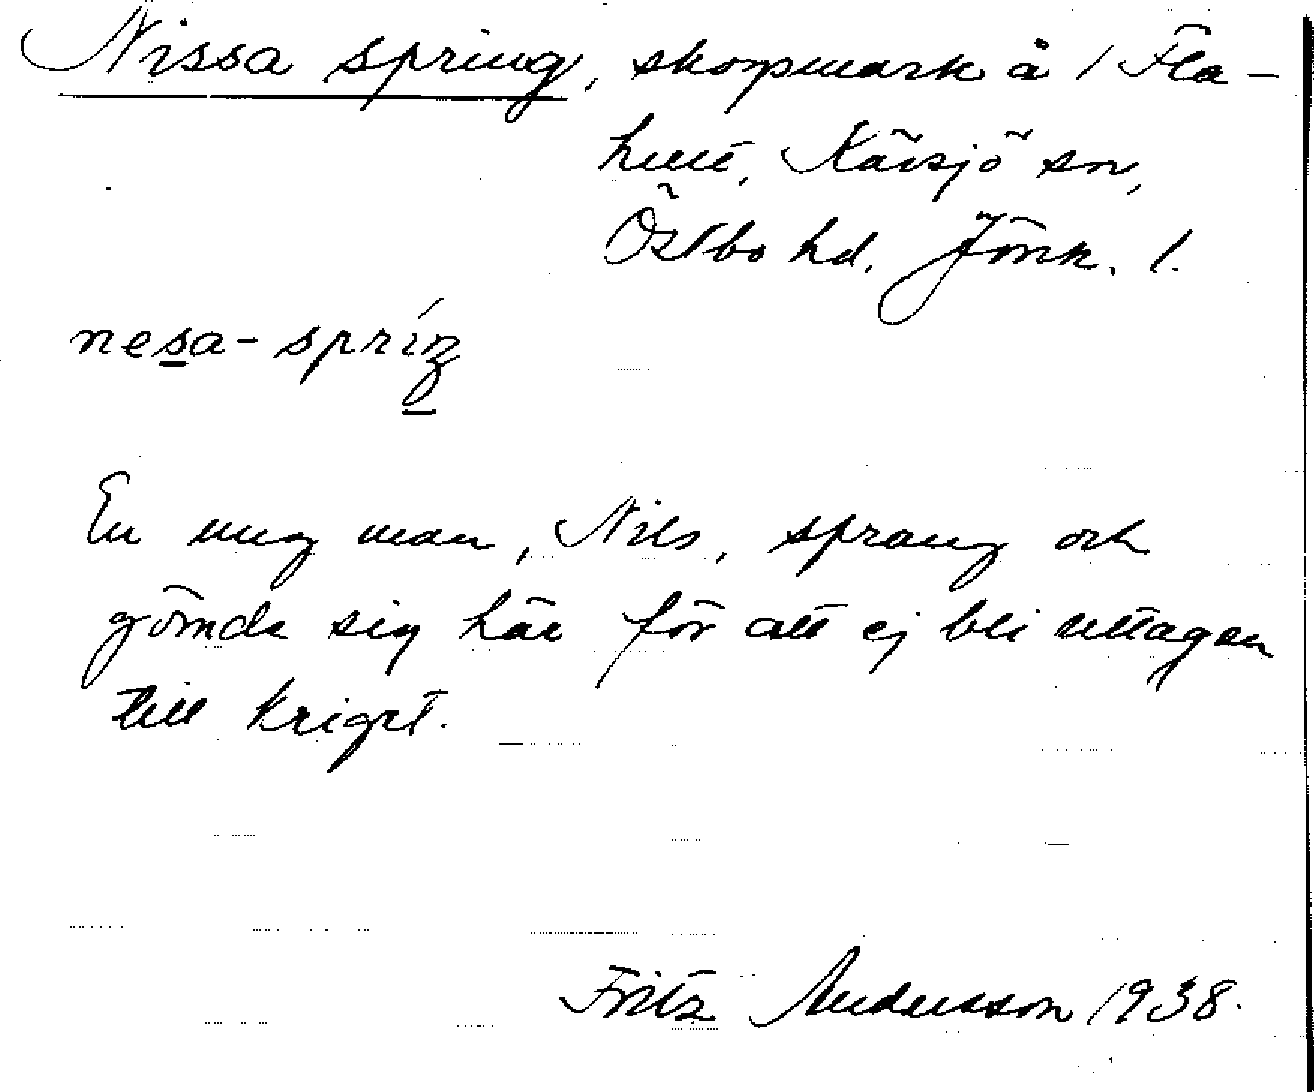 Nissa spring, skogsmark å 1 Fla-
hult, Kävsjö sn,
Östbo hd. Jönk. l.
nesa-spríŋ
En ung man, Nils, sprang och
gömde sig här för att ej bli uttagen
till kriget.
Fritz Andersson 1938.